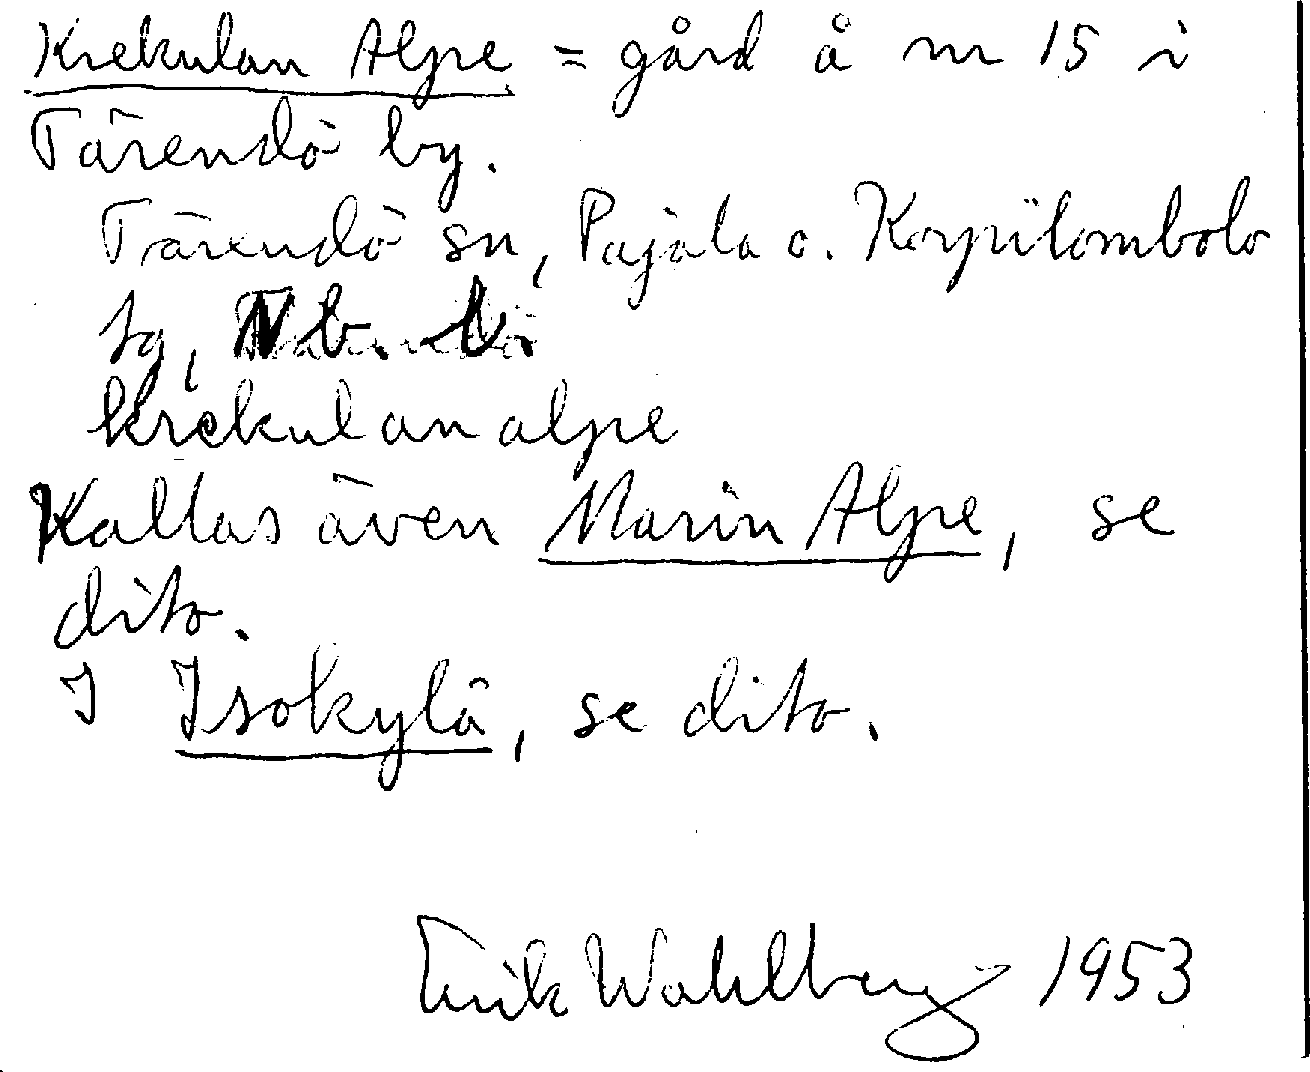 Krekulan Alpe = gård å nr 15 i
Tärendö by.
Tärendö sn, Pajala o. Korpilombolo
tg, Nb. l.
krekulan alpe
Kallas även Marin Alpe, se
dito.
I Isokylä, se dito.
Erik Wahlberg 1953